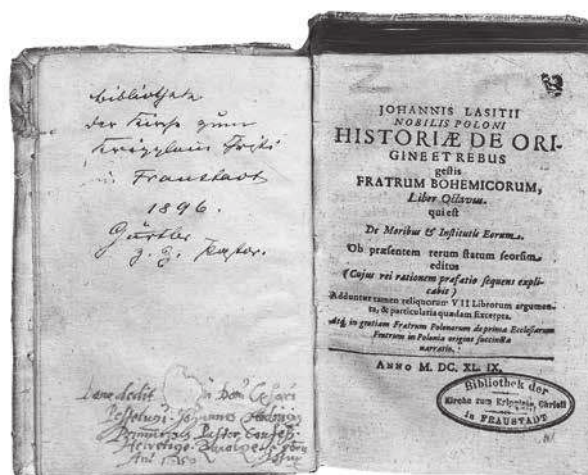 Bibliothek
der Kirche zum
Kripplein Christi
in Fraustadt
1896.
Gürtler
z. Z. Pastor.
dedit
Johannes
Pastor
JOHANNIS LASITII
NOBILIS POLONI
HISTORIÆ DE ORI-
GINE ET REBUS
gestis
FRATRUM BOHEMICORUM,
Liber Octavus.
qui est
De Moribus & Institutis Eorum.
Ob præsentem rerum statum seorsim
editus
(Cujus rei rationem præfatio sequens expli-
cabit)
Adduntur tamen reliquorum VII Librorum argumen-
ta, & particularia quædam Excerpta.
Atq; in gratiam Fratrum Polonorum de prima Ecclesiarum
Fratrum in Polonia origine succincta
narratio.
ANNO M. DC. XL. IX.
Bibliothek der
Kirche zum Kripplein Christi
in FRAUSTADT